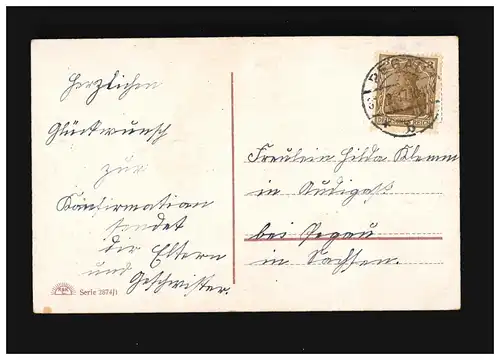 Herzlichen
Glückwunsch
zur
Konfirmation
sendet
der Eltern
und Geschwister.
Serie 3874/1
PEGAU
Fräulein Hilda Klemm
in Audigast
bei Pegau
in Sachsen.